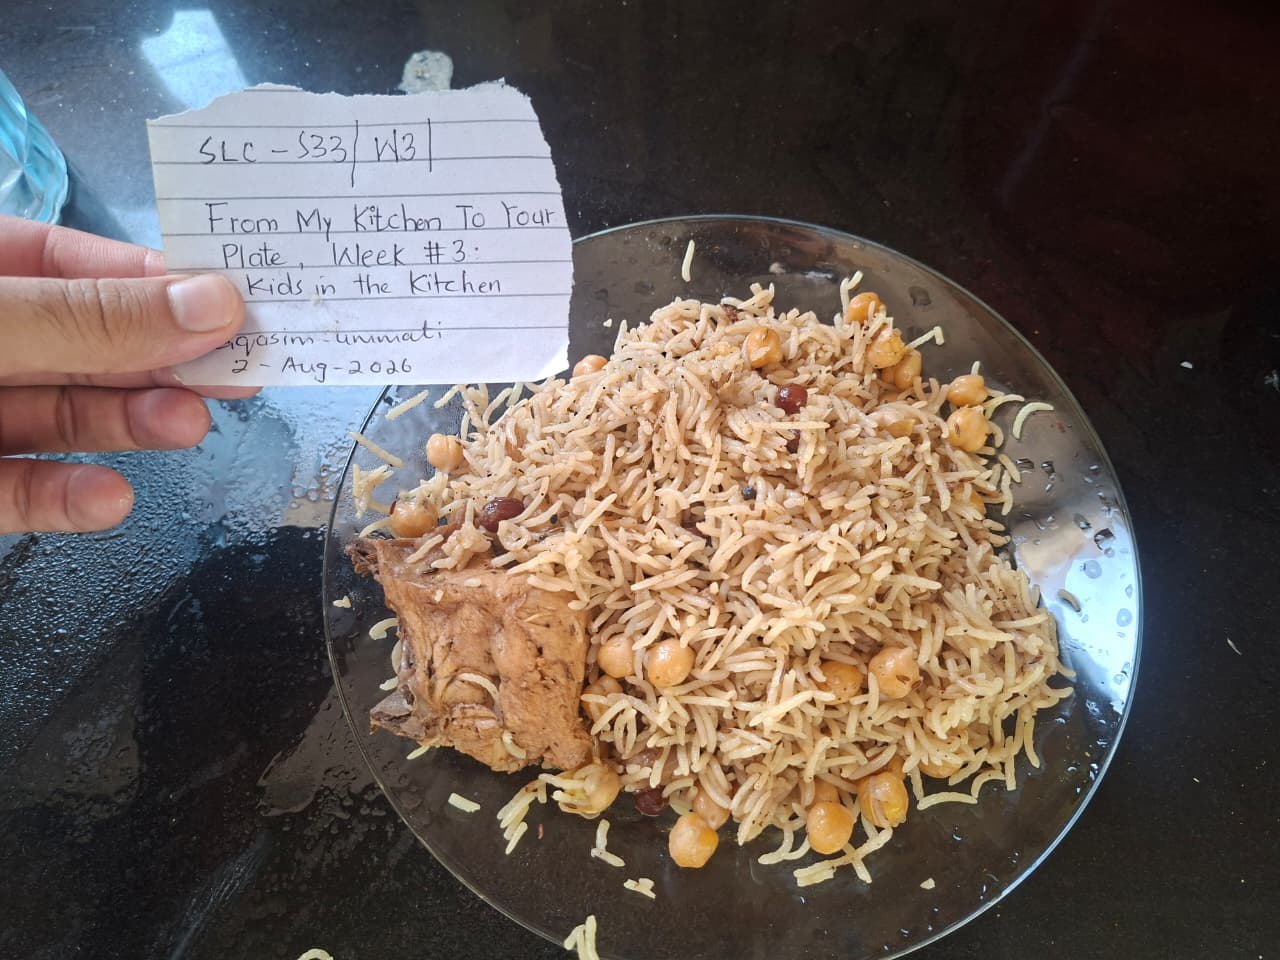 SLC - S33 | W3 |
From My Kitchen To Your
Plate, Week #3:
Kids in the Kitchen
2 - Aug - 2026